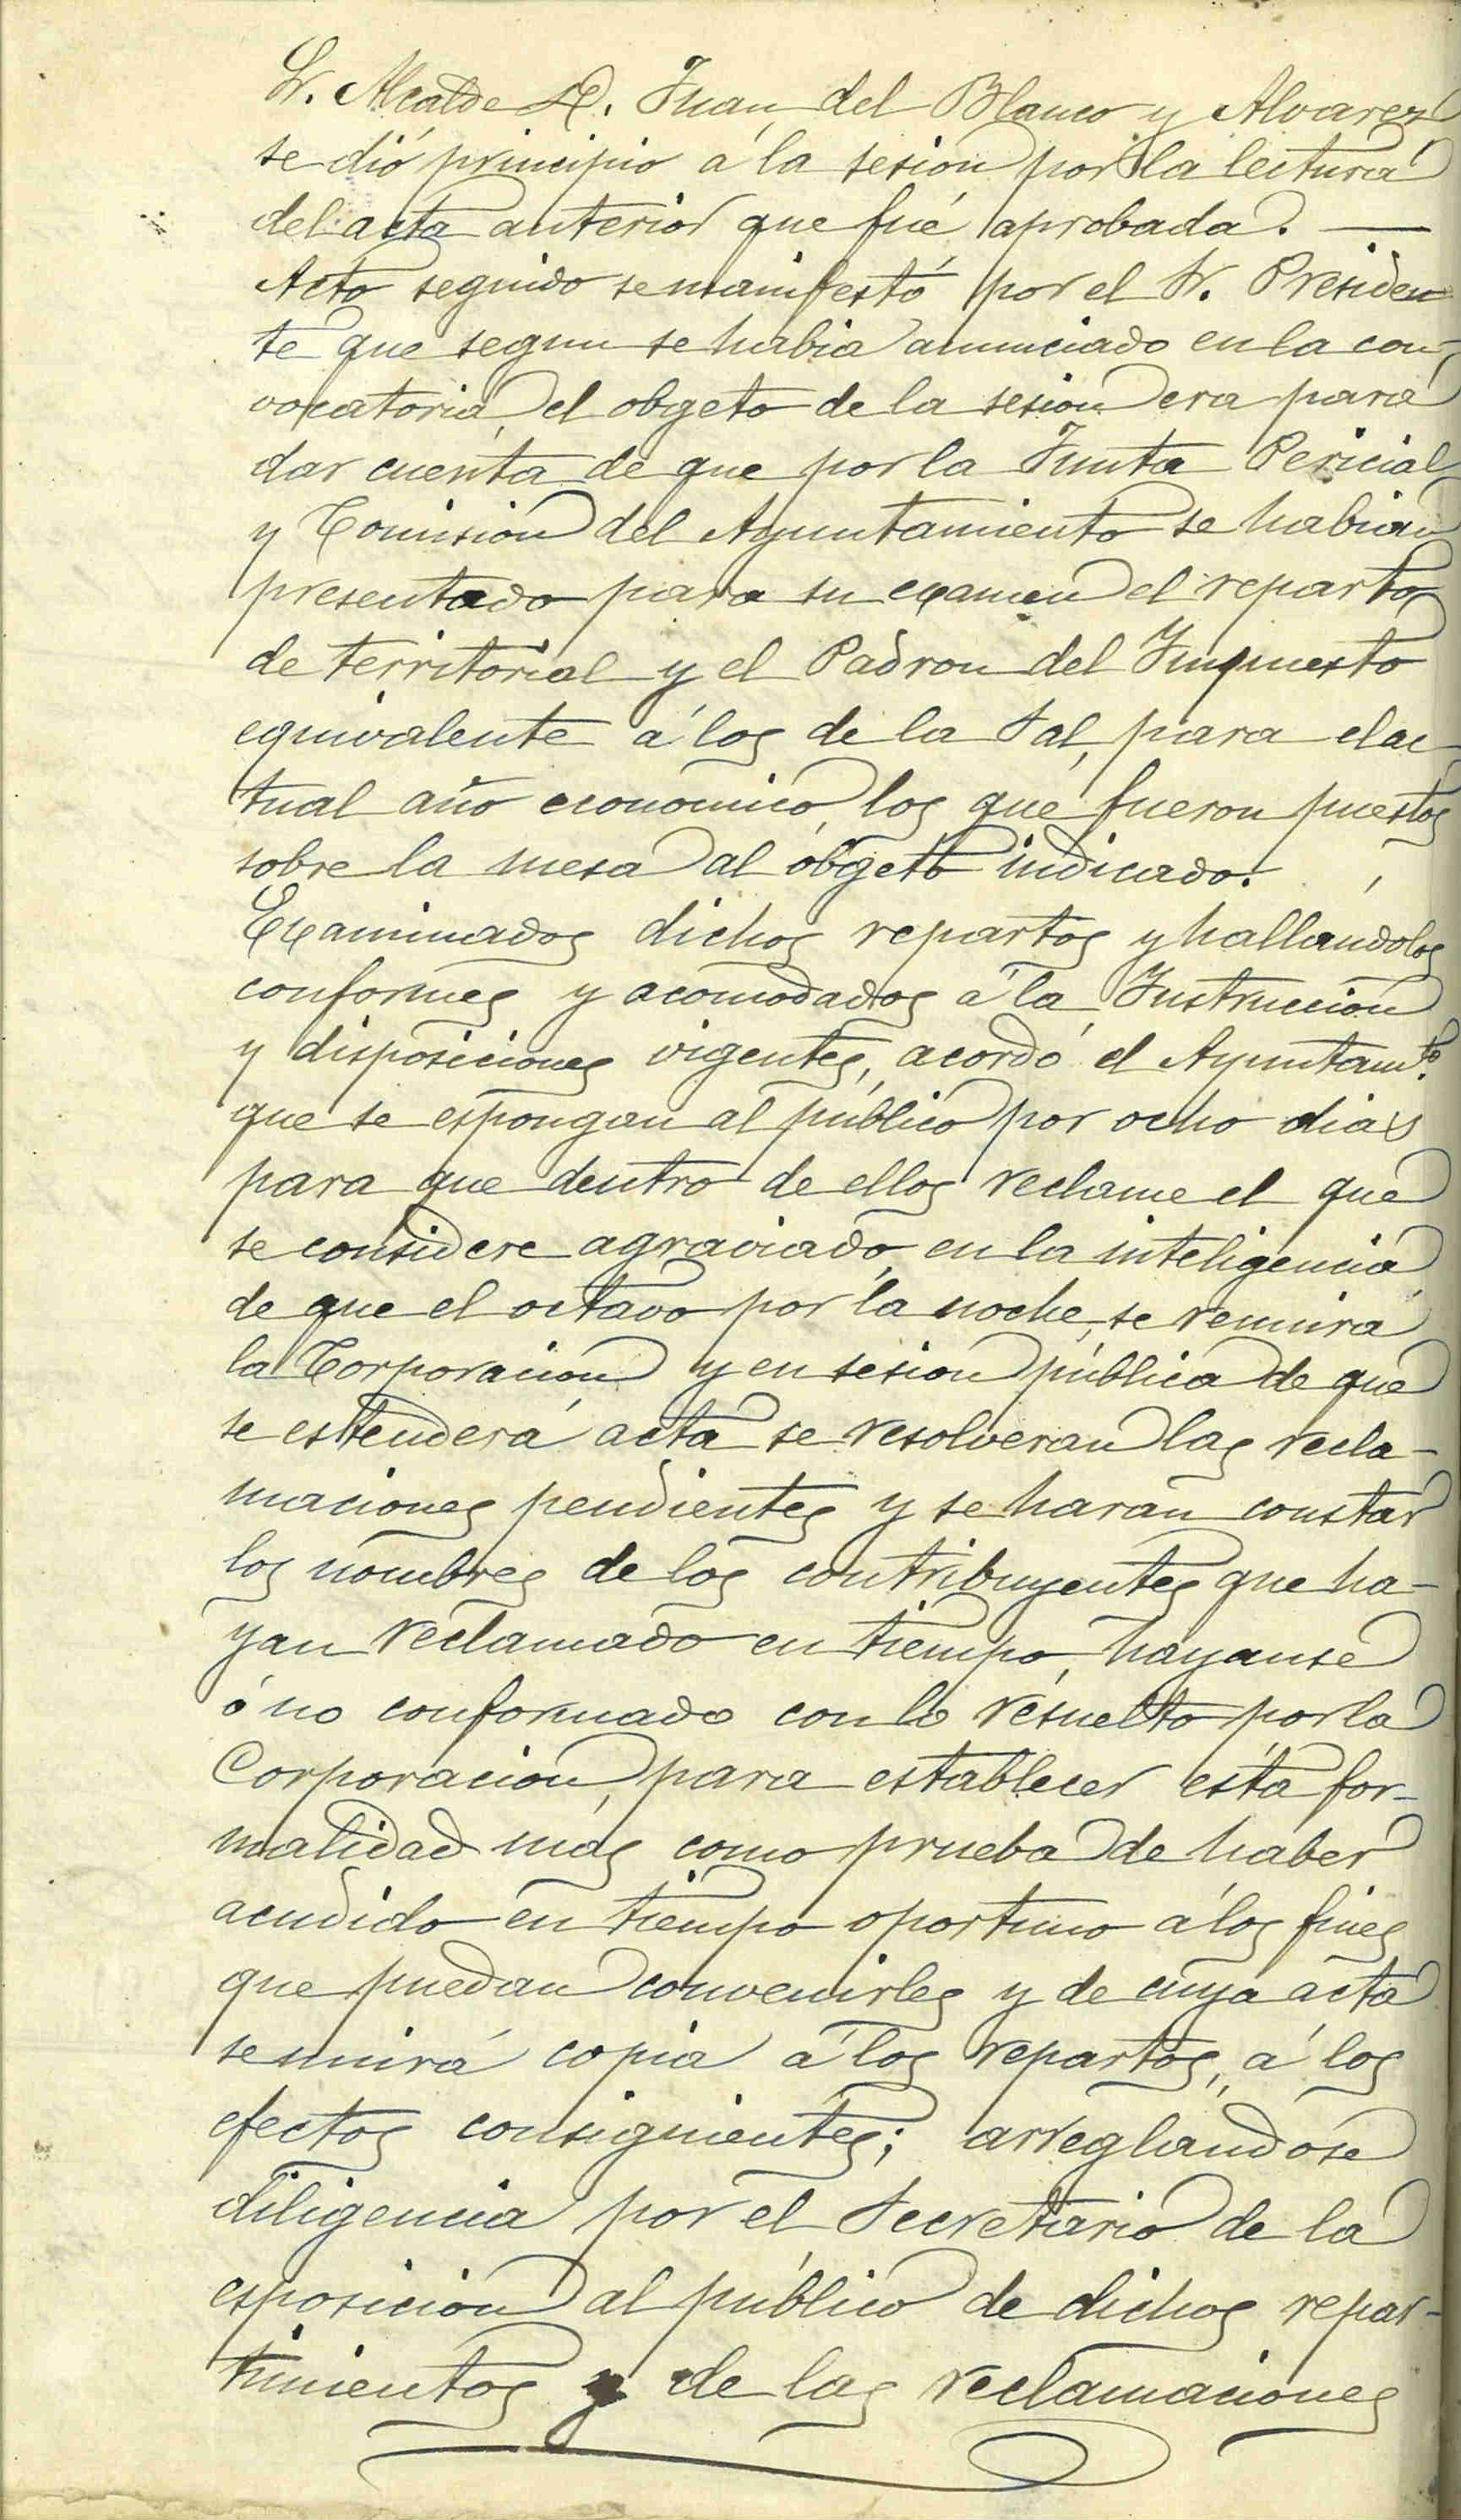 Sr. Alcalde D. Juan del Blanco y Alvarez
se dió principio á la sesion por la lectura
del acta anterior que fué aprobada.
Acto seguido se manifestó por el Sr. Presiden
te que segun se habia anunciado en la con-
vocatoria, el obgeto de la sesion era para
dar cuenta de que por la Junta Pericial
y Comision del Ayuntamiento se habian
presentado para su examen el reparto
de territorial y el Padron del Impuesto
equivalente á los de la Sal, para el ac-
tual año economico, los que fueron puestos
sobre la mesa al obgeto indicado.
Examinados dichos repartos y hallandolos
conformes y acomodados á la Instruccion
y disposiciones vigentes, acordó el Ayuntamto.
que se espongan al público por ocho dias
para que dentro de ellos reclame el que
se considere agraviado, en la inteligencia
de que el octavo por la noche, se reunirá
la Corporacion y en sesion pública de que
se estenderá acta se resolveran las recla-
maciones pendientes y se harán constar
los nombres de los contribuyentes que ha-
yan reclamado en tiempo, hayanse
ó no conformado con lo resuelto por la
Corporacion, para establecer esta for-
malidad más como prueba de haber
acudido en tiempo oportuno á los fines
que puedan convenirles y de cuya acta
se unirá copia á los repartos, á los
efectos consiguientes; arreglandose
diligencia por el Secretario de la
esposicion al público de dichos repar-
timientos y de las reclamaciones